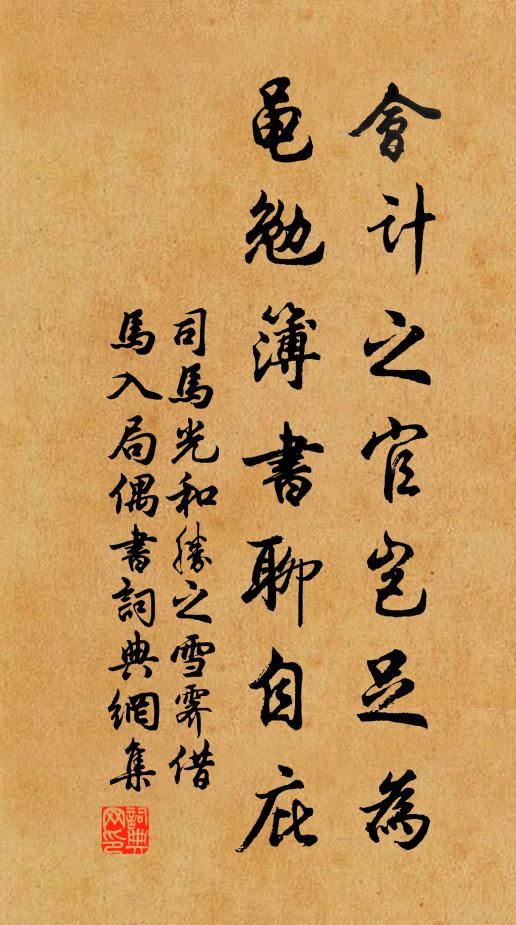 會計之官豈足為
黽勉簿書聊自庇
司馬光和勝之雪霽借
馬入局偶書詞典網集
詞典网印